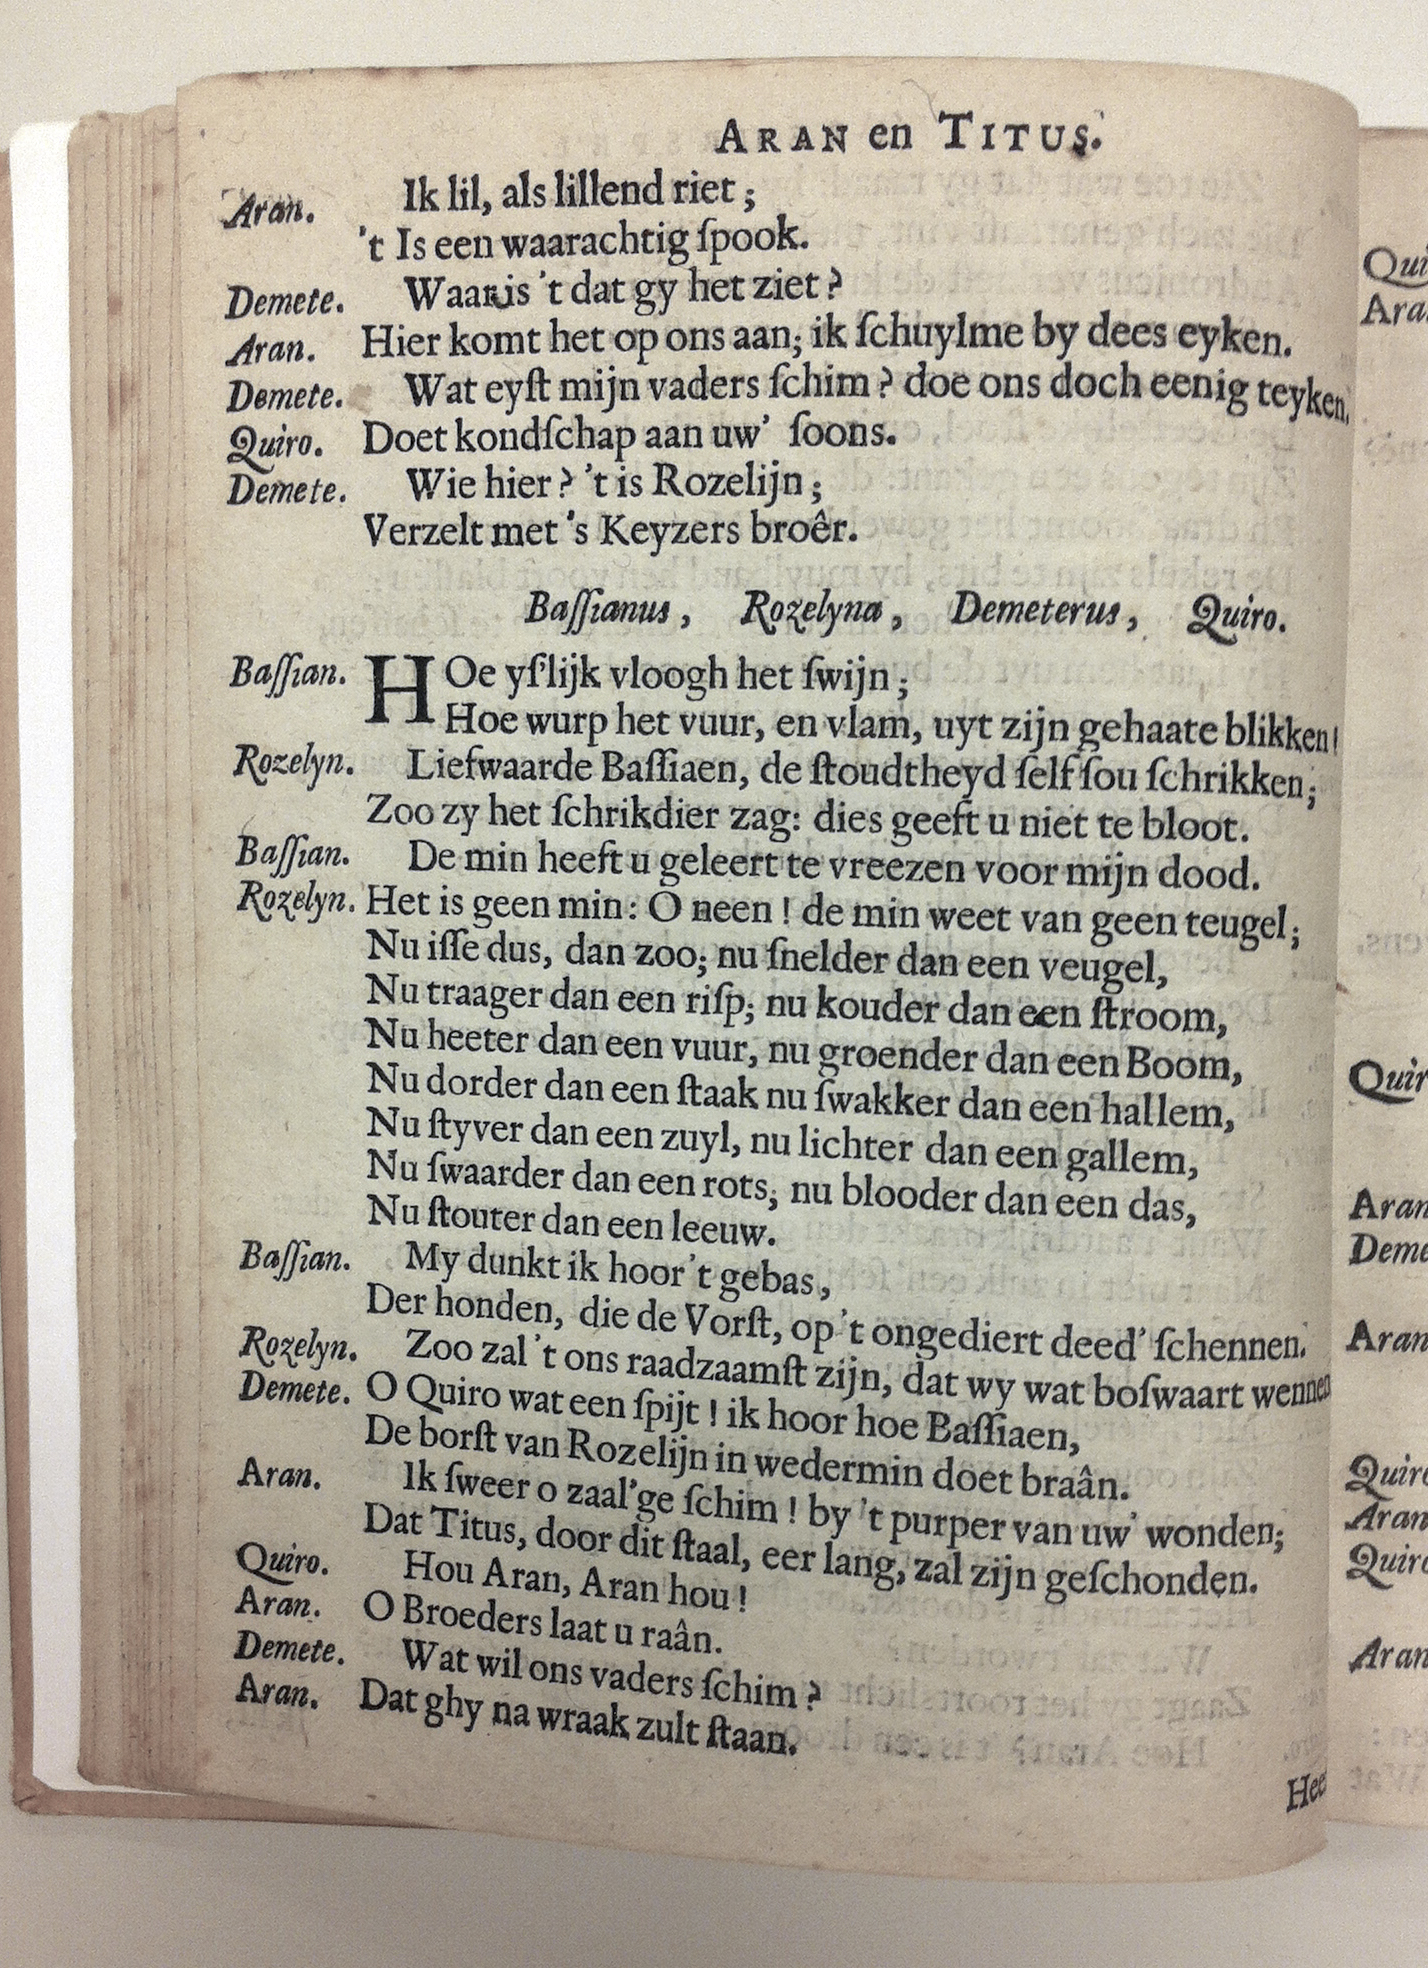 ARAN en TITUS.
Aran. Ik lil, als lillend riet;
't Is een waarachtig ſpook.
Demete. Waar is 't dat gy het ziet?
Aran. Hier komt het op ons aan; ik ſchuylme by dees eyken.
Demete. Wat eyſt mijn vaders ſchim? doe ons doch eenig teyken.
Quiro. Doet kondſchap aan uw' ſoons.
Demete. Wie hier? 't is Rozelijn;
Verzelt met 's Keyzers broêr.
Baſſianus, Rozelyna, Demeterus, Quiro.
Baſſian. HOe yſ'lijk vloogh het ſwijn;
Hoe wurp het vuur, en vlam, uyt zijn gehaate blikken!
Rozelyn. Liefwaarde Baſſiaen, de ſtoudtheyd ſelf ſou ſchrikken;
Zoo zy het ſchrikdier zag: dies geeft u niet te bloot.
Baſſian. De min heeft u geleert te vreezen voor mijn dood.
Rozelyn. Het is geen min: O neen! de min weet van geen teugel;
Nu iſſe dus, dan zoo; nu ſnelder dan een veugel,
Nu traager dan een riſp; nu kouder dan een ſtroom,
Nu heeter dan een vuur, nu groender dan een Boom,
Nu dorder dan een ſtaak nu ſwakker dan een hallem,
Nu ſtyver dan een zuyl, nu lichter dan een gallem,
Nu ſwaarder dan een rots; nu blooder dan een das,
Nu ſtouter dan een leeuw.
Baſſian. My dunkt ik hoor 't gebas,
Der honden, die de Vorſt, op 't ongediert deed' ſchennen.
Rozelyn. Zoo zal 't ons raadzaamſt zijn, dat wy wat boſwaart wennen
Demete. O Quiro wat een ſpijt! ik hoor hoe Baſſiaen,
De borſt van Rozelijn in wedermin doet braân.
Aran. Ik ſweer o zaal'ge ſchim! by 't purper van uw' wonden;
Dat Titus, door dit ſtaal, eer lang, zal zijn geſchonden.
Quiro. Hou Aran, Aran hou!
Aran. O Broeders laat u raân.
Demete. Wat wil ons vaders ſchim?
Aran. Dat ghy na wraak zult ſtaan.
Hee
Qui
Ara
Quir
Aran
Deme
Aran
Quiro
Aran
Quiro
Aran